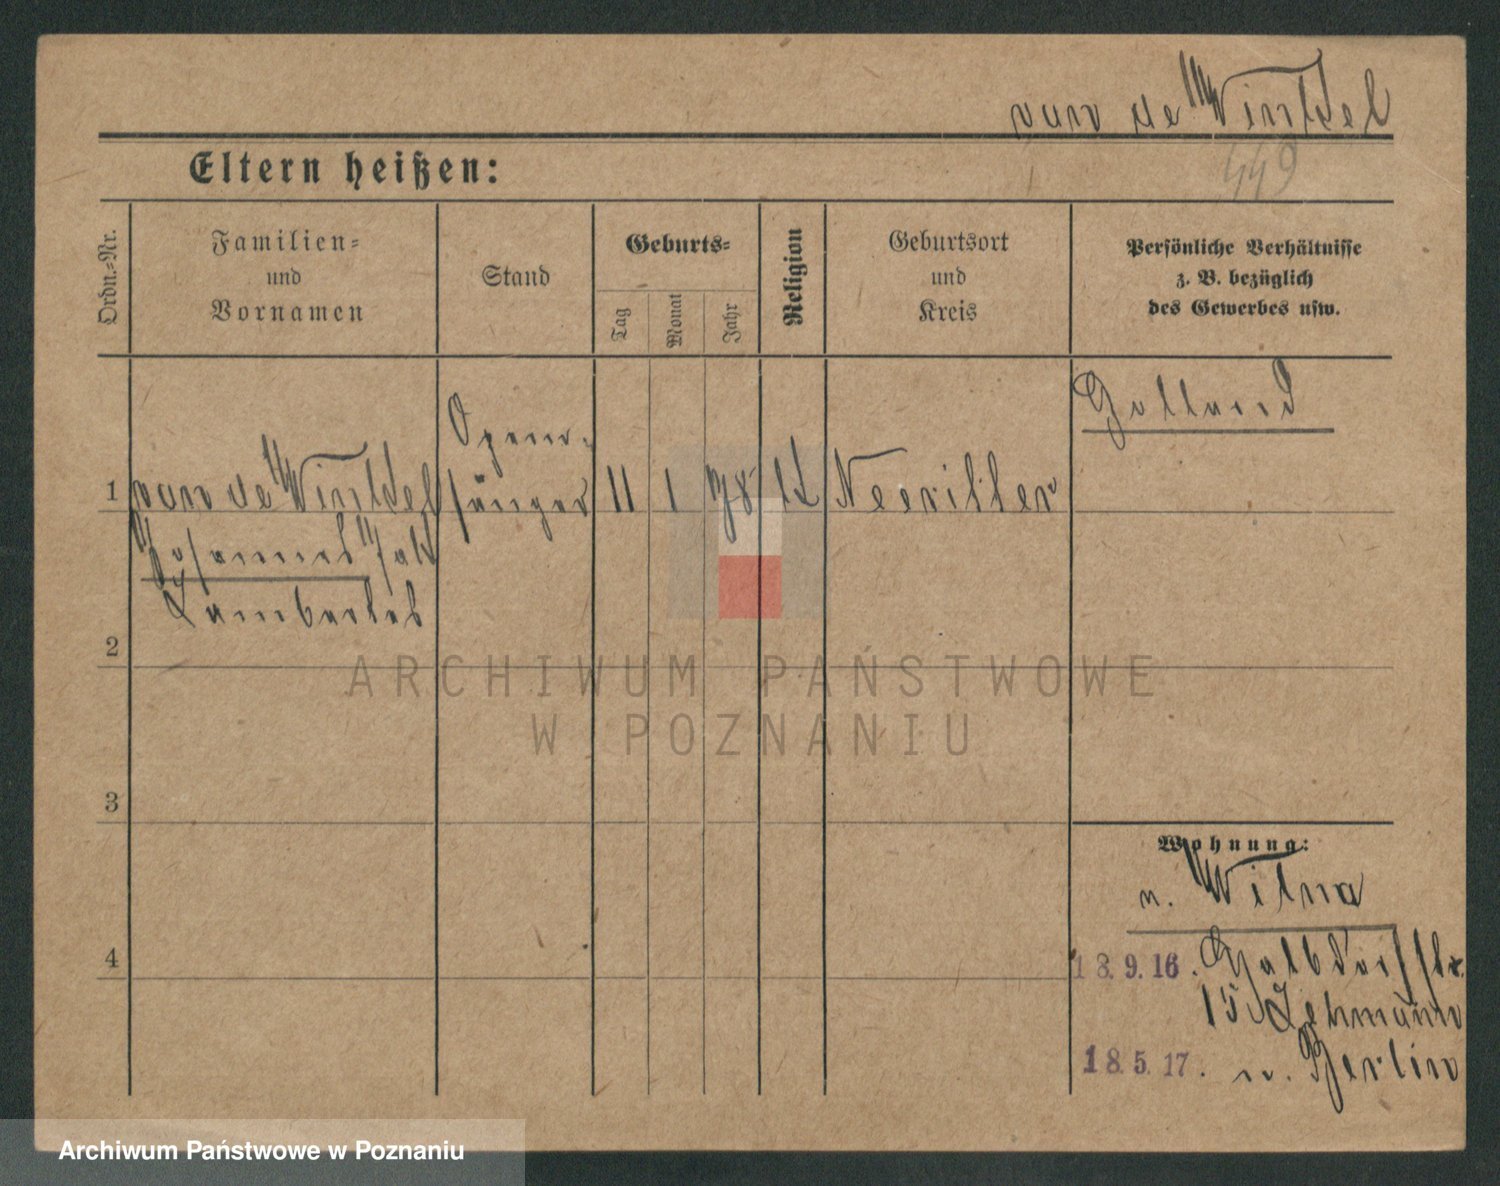 van de Winkel
449
Eltern heißen:
Ordn.-Nr.
Familien-
und
Vornamen
Stand
Geburts-
Tag
Monat
Jahr
Religion
Geburtsort
und
Kreis
Persönliche Verhältnisse
z. B. bezüglich
des Gewerbes usw.
Holland
1
van de Winkel
Johannes Jak
Lambertus
Opern-
sänger
11
1
78
k
Neeritter
2
3
4
Wohnung:
n. Wilna
18.9.16. Halbdorfstr.
15 Lehmann
18.5.17. n. Berlin
ARCHIWUM PAŃSTWOWE
W POZNANIU
Archiwum Państwowe w Poznaniu